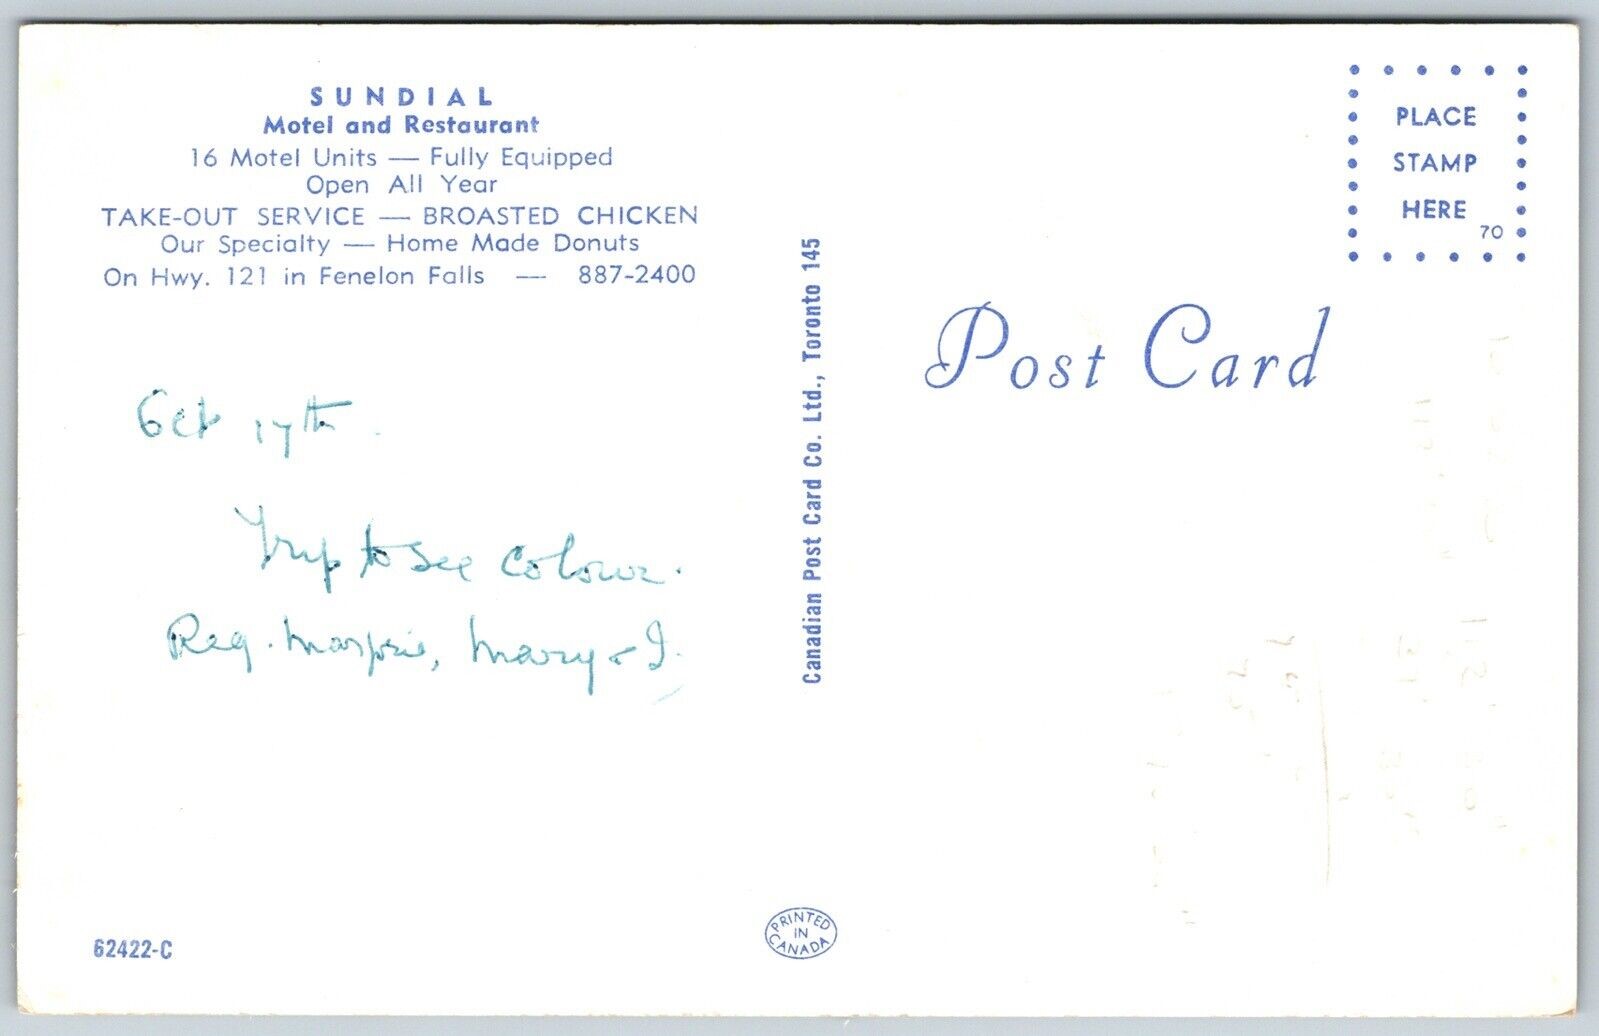 SUNDIAL
Motel and Restaurant
16 Motel Units — Fully Equipped
Open All Year
TAKE-OUT SERVICE — BROASTED CHICKEN
Our Specialty — Home Made Donuts
On Hwy. 121 in Fenelon Falls — 887-2400
Oct 17th.
Trip to see colour.
Reg. Marjorie, Mary & I.
62422-C
Canadian Post Card Co. Ltd., Toronto 145
PRINTED
IN
CANADA
PLACE
STAMP
HERE
70
Post Card